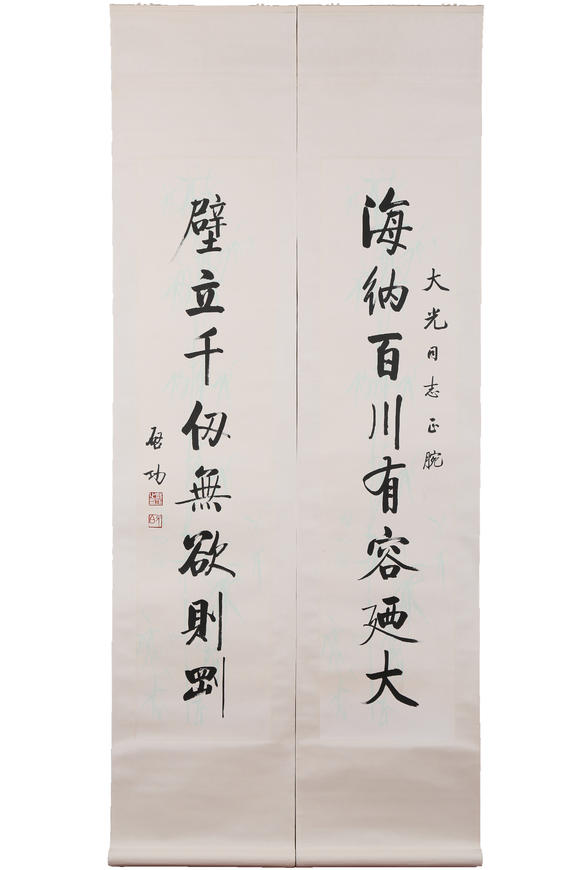 大光同志正腕
海納百川有容廼大
壁立千仞無欲則剛
啟功